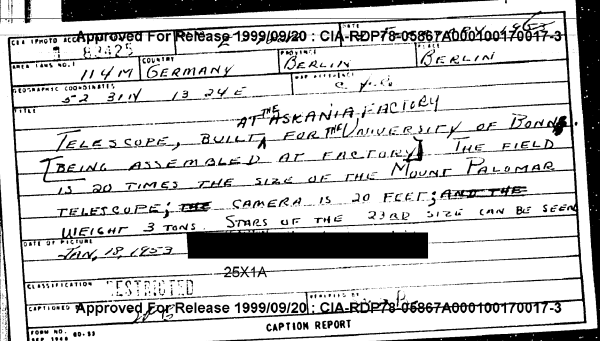 Approved For Release 1999/09/20 : CIA-RDP78-05867A000100170017-3
CIA (PHOTO ACC
DATE
82425
AREA (AMS NO.)
114M
COUNTRY
GERMANY
PROVINCE
BERLIN
PLACE
BERLIN
GEOGRAPHIC COORDINATES
52 31N 13 24E
MAP REFERENCE
TITLE
AT THE ASKANIA FACTORY
TELESCOPE, BUILT FOR THE UNIVERSITY OF BONN.
[BEING ASSEMBLED AT FACTORY] THE FIELD
IS 20 TIMES THE SIZE OF THE MOUNT PALOMAR
TELESCOPE; THE CAMERA IS 20 FEET; AND THE
WEIGHT 3 TONS. STARS OF THE 23RD SIZE CAN BE SEEN
DATE OF PICTURE
JAN, 18, 1953
25X1A
CLASSIFICATION
RESTRICTED
CAPTIONED
VERIFIED BY
Approved For Release 1999/09/20 : CIA-RDP78-05867A000100170017-3
FORM NO. 60-53
SEP 1948
CAPTION REPORT